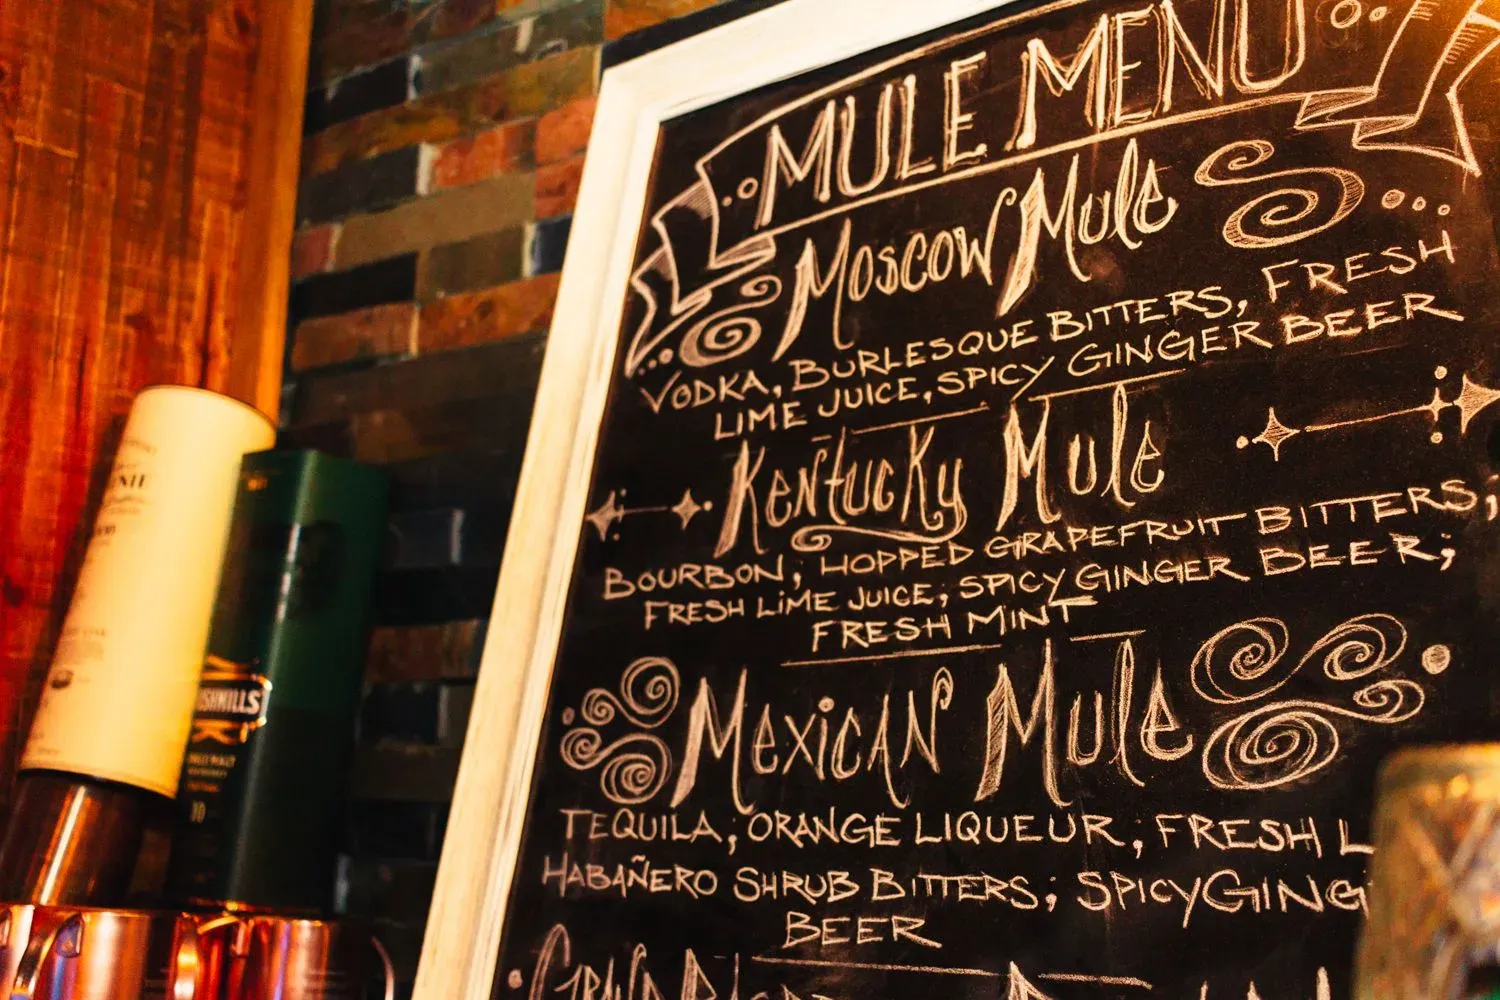 MULE MENU
Moscow Mule
VODKA, BURLESQUE BITTERS, FRESH
LIME JUICE, SPICY GINGER BEER
Kentucky Mule
BOURBON; HOPPED GRAPEFRUIT BITTERS;
FRESH LIME JUICE; SPICY GINGER BEER;
FRESH MINT
Mexican Mule
TEQUILA; ORANGE LIQUEUR; FRESH L
HABAÑERO SHRUB BITTERS; SPICY GING
BEER
SHMILLS
10